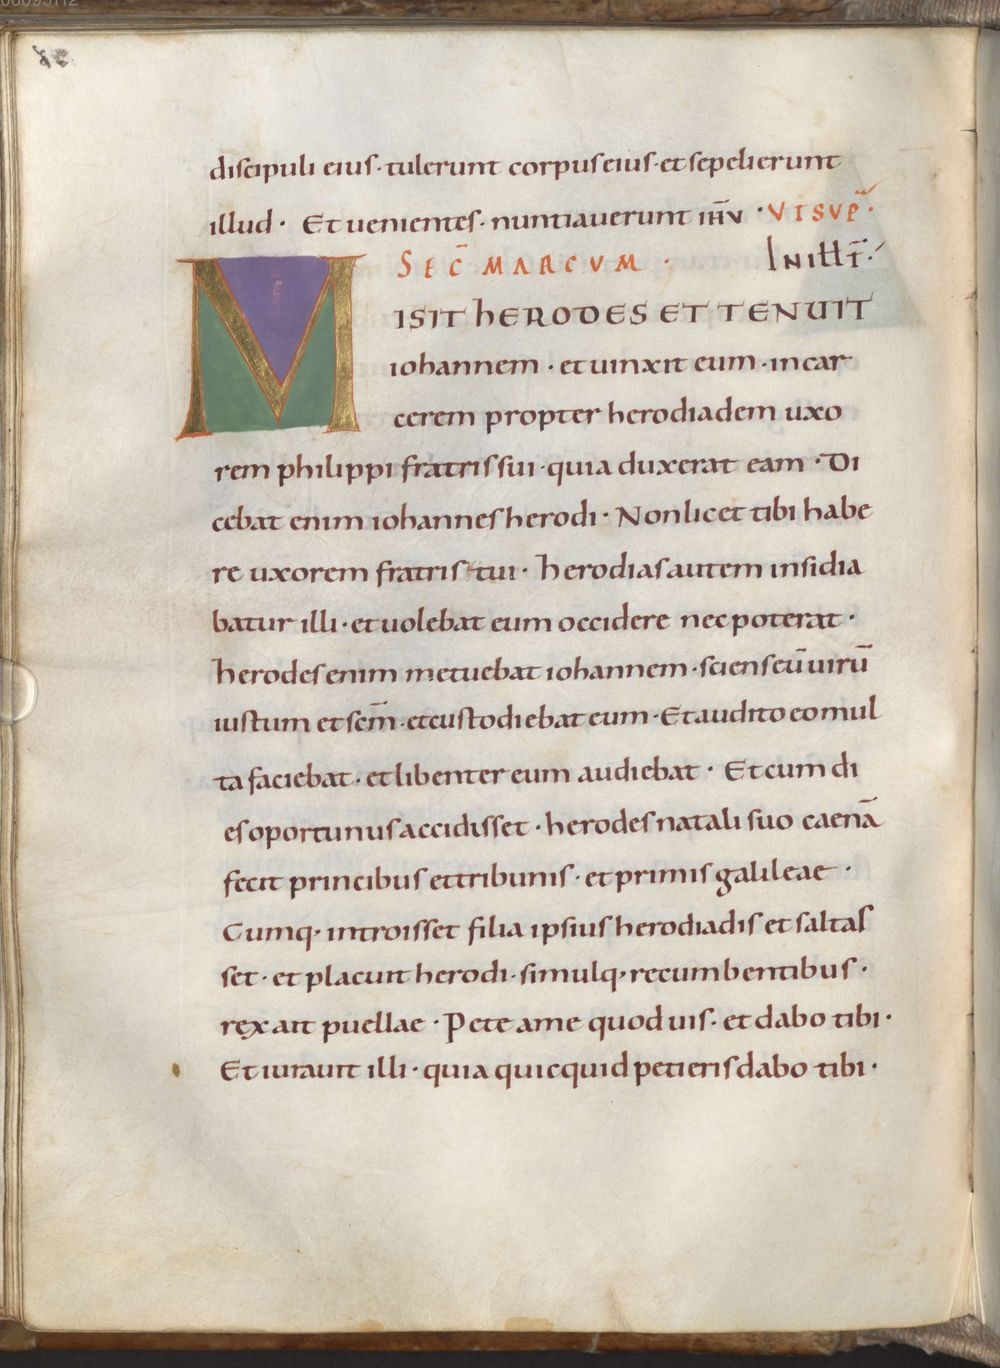 discipuli eius · tulerunt corpus eius · et sepelierunt
illud · Et uenientes · nuntiauerunt ihv̄ · VT SVP̄ ·
SEC̄ MARCVM · IN ILL T̄ ·
MISIT hERODES ET TENUIT
iohannem · et uinxit eum · in car
cerem propter herodiadem uxo
rem philippi fratris sui · quia duxerat eam · Di
cebat enim iohannes herodi · Non licet tibi habe
re uxorem fratris tui · herodias autem insidia
batur illi · et uolebat eum occidere nec poterat ·
herodes enim metuebat iohannem · sciens eū uirū
iustum et scm̄ · et custodiebat eum · Et audito eo mul
ta faciebat · et libenter eum audiebat · Et cum di
es oportunus accidisset · herodes natali suo caenā
fecit principibus et tribunis · et primis galileae ·
Cumq · introisset filia ipsius herodiadis et saltas
set · et placuit herodi · simulq · recumbentibus ·
rex ait puellae · Pete a me quod uis · et dabo tibi ·
Et iurauit illi · quia quicquid petieris dabo tibi ·